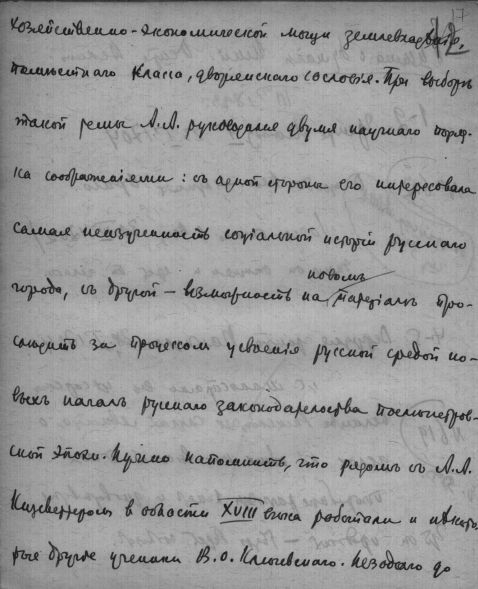 17
42
хозяйственно-экономической мощи землевладѣльч.
помѣстнаго класса, дворянскаго сословія. При выборѣ
такой темы А.А. руководился двумя научнаго поряд-
ка соображеніями: съ одной стороны его интересовала
самая неизученность соціальной исторіи русскаго
новомъ
города, съ другой – возможность на матеріалѣ про-
слѣдить за процессомъ усвоенія русской средой но-
выхъ началъ русскаго законодательства послѣпетров-
ской эпохи. Нужно напомнить, что рядомъ съ А.А.
Кизеветтеромъ в области XVIII вѣка работали и нѣкото-
рые другіе ученики В.О. Ключевскаго. Незадолго до